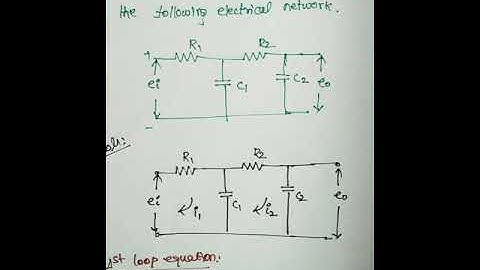 the following electrical network.
R1 R2
+
ei C1 C2 eo
-
R1 R2
ei i1 C1 i2 C2 eo
st loop equation: